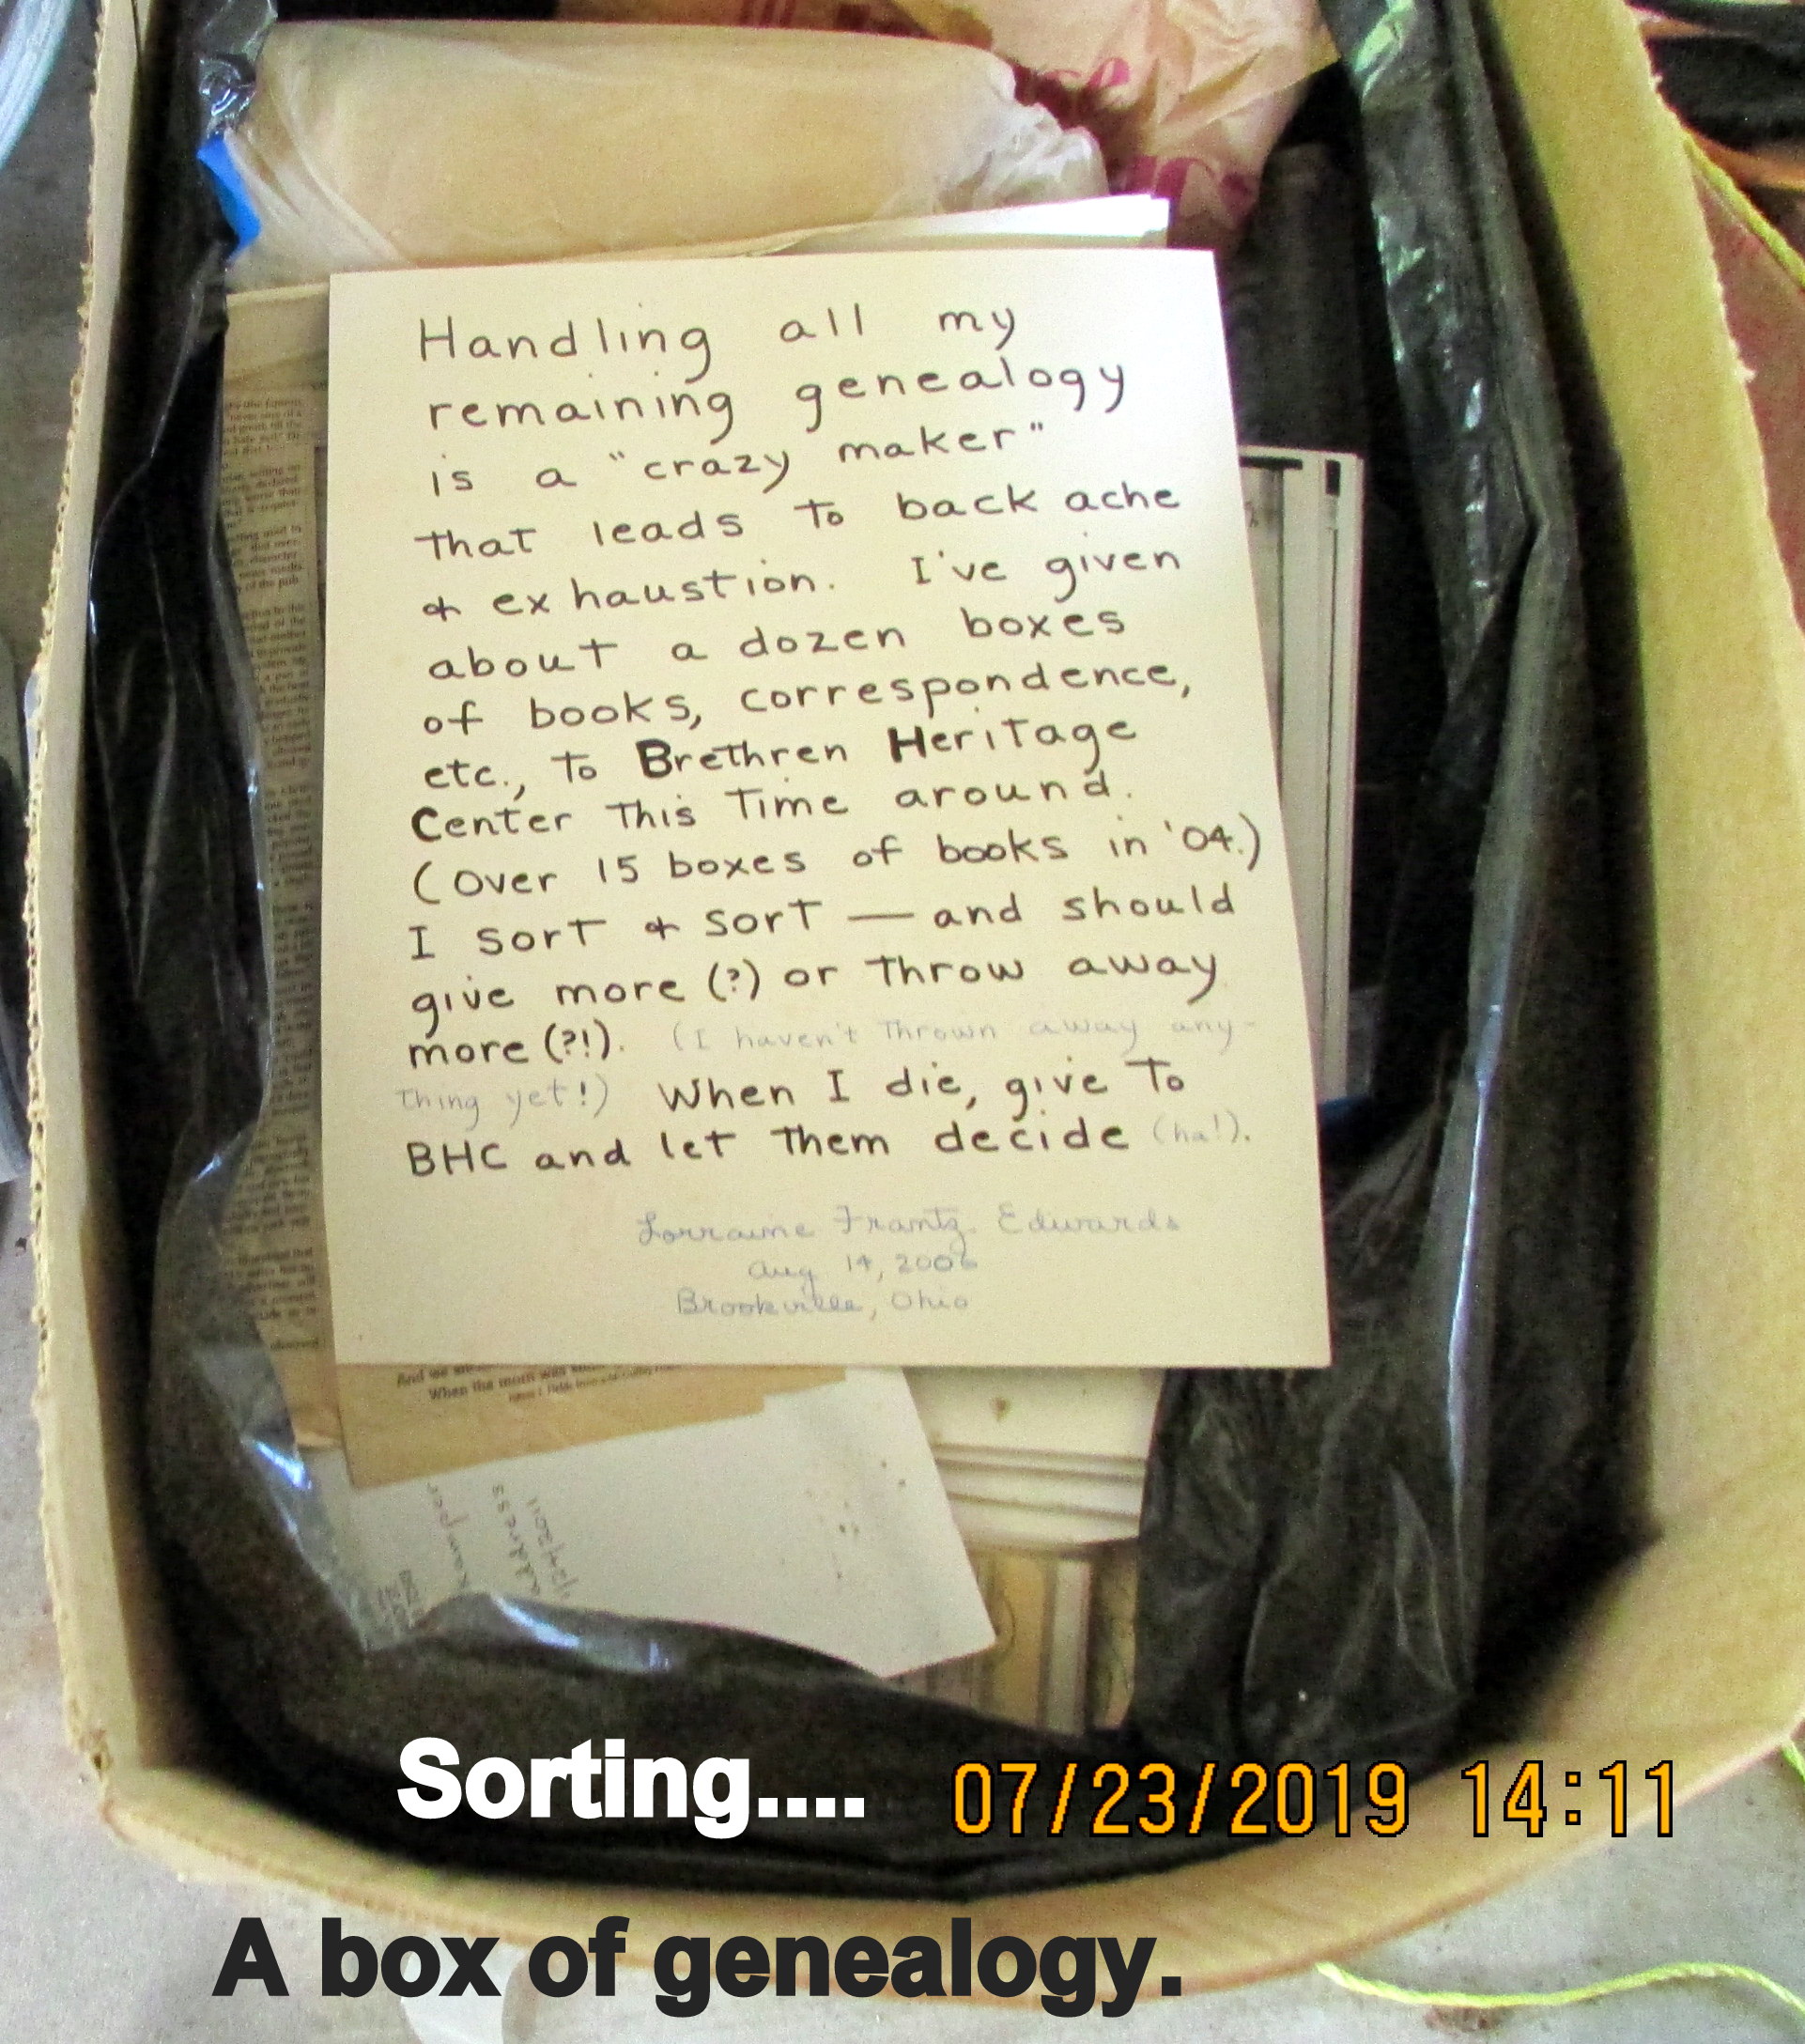 Handling all my
remaining genealogy
is a "crazy maker"
that leads to back ache
& exhaustion. I've given
about a dozen boxes
of books, correspondence,
etc., to Brethren Heritage
Center this time around.
(Over 15 boxes of books in '04.)
I sort & sort — and should
give more (?) or throw away
more (?!). (I haven't thrown away any-
thing yet!) When I die, give to
BHC and let them decide (ha!).
Lorraine Frantz Edwards
Aug 14, 2006
Brookville, Ohio
When the moth was
address
Sorting....
07/23/2019 14:11
A box of genealogy.